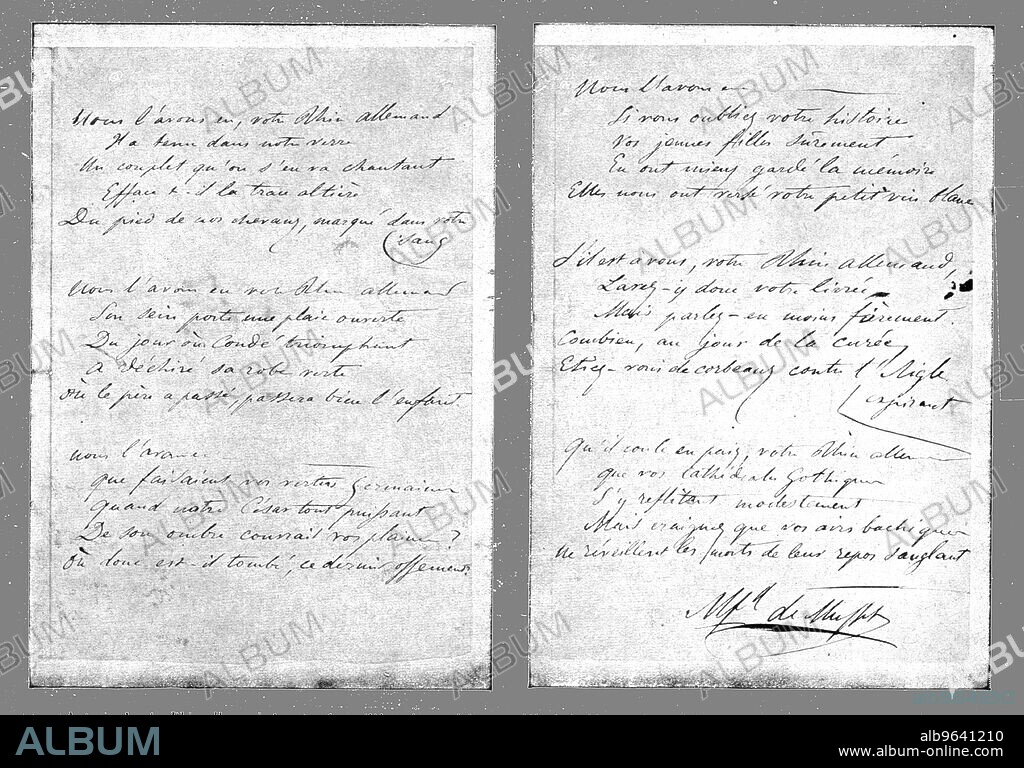 Nous l'avons eu, votre Rhin allemand
Il a tenu dans notre verre
Un couplet qu'on s'en va chantant
Efface t-il la trace altière
Du pied de nos chevaux, marqué dans votre
sang
Nous l'avons eu votre Rhin allemand
Son sein porte une plaie ouverte
Du jour où Condé triomphant
A déchiré sa robe verte
Où le père a passé, passera bien l'enfant.
nous l'avons
que faisaient vos vertus germaines
Quand notre César tout puissant
De son ombre couvrait vos plaines ?
Où donc est-il tombé, ce dernier ossement
Nous l'avons eu
Si vous oubliez votre histoire
Vos jeunes filles sûrement
En ont mieux gardé la mémoire
Elles nous ont versé votre petit vin blanc
S'il est à vous, votre Rhin allemand,
Lavez-y donc votre livrée
Mais parlez-en moins fièrement.
Combien, au jour de la curée,
Etiez-vous de corbeaux contre l'Aigle
expirant
Qu'il coule en paix, votre Rhin allemand
que vos cathédrales Gothiques
S'y reflètent modestement
Mais craignez que vos airs bachiques
ne réveillent les morts de leur repos sanglant
Alf.d de Musset
ALBUM
ab9641210
www.album-online.com